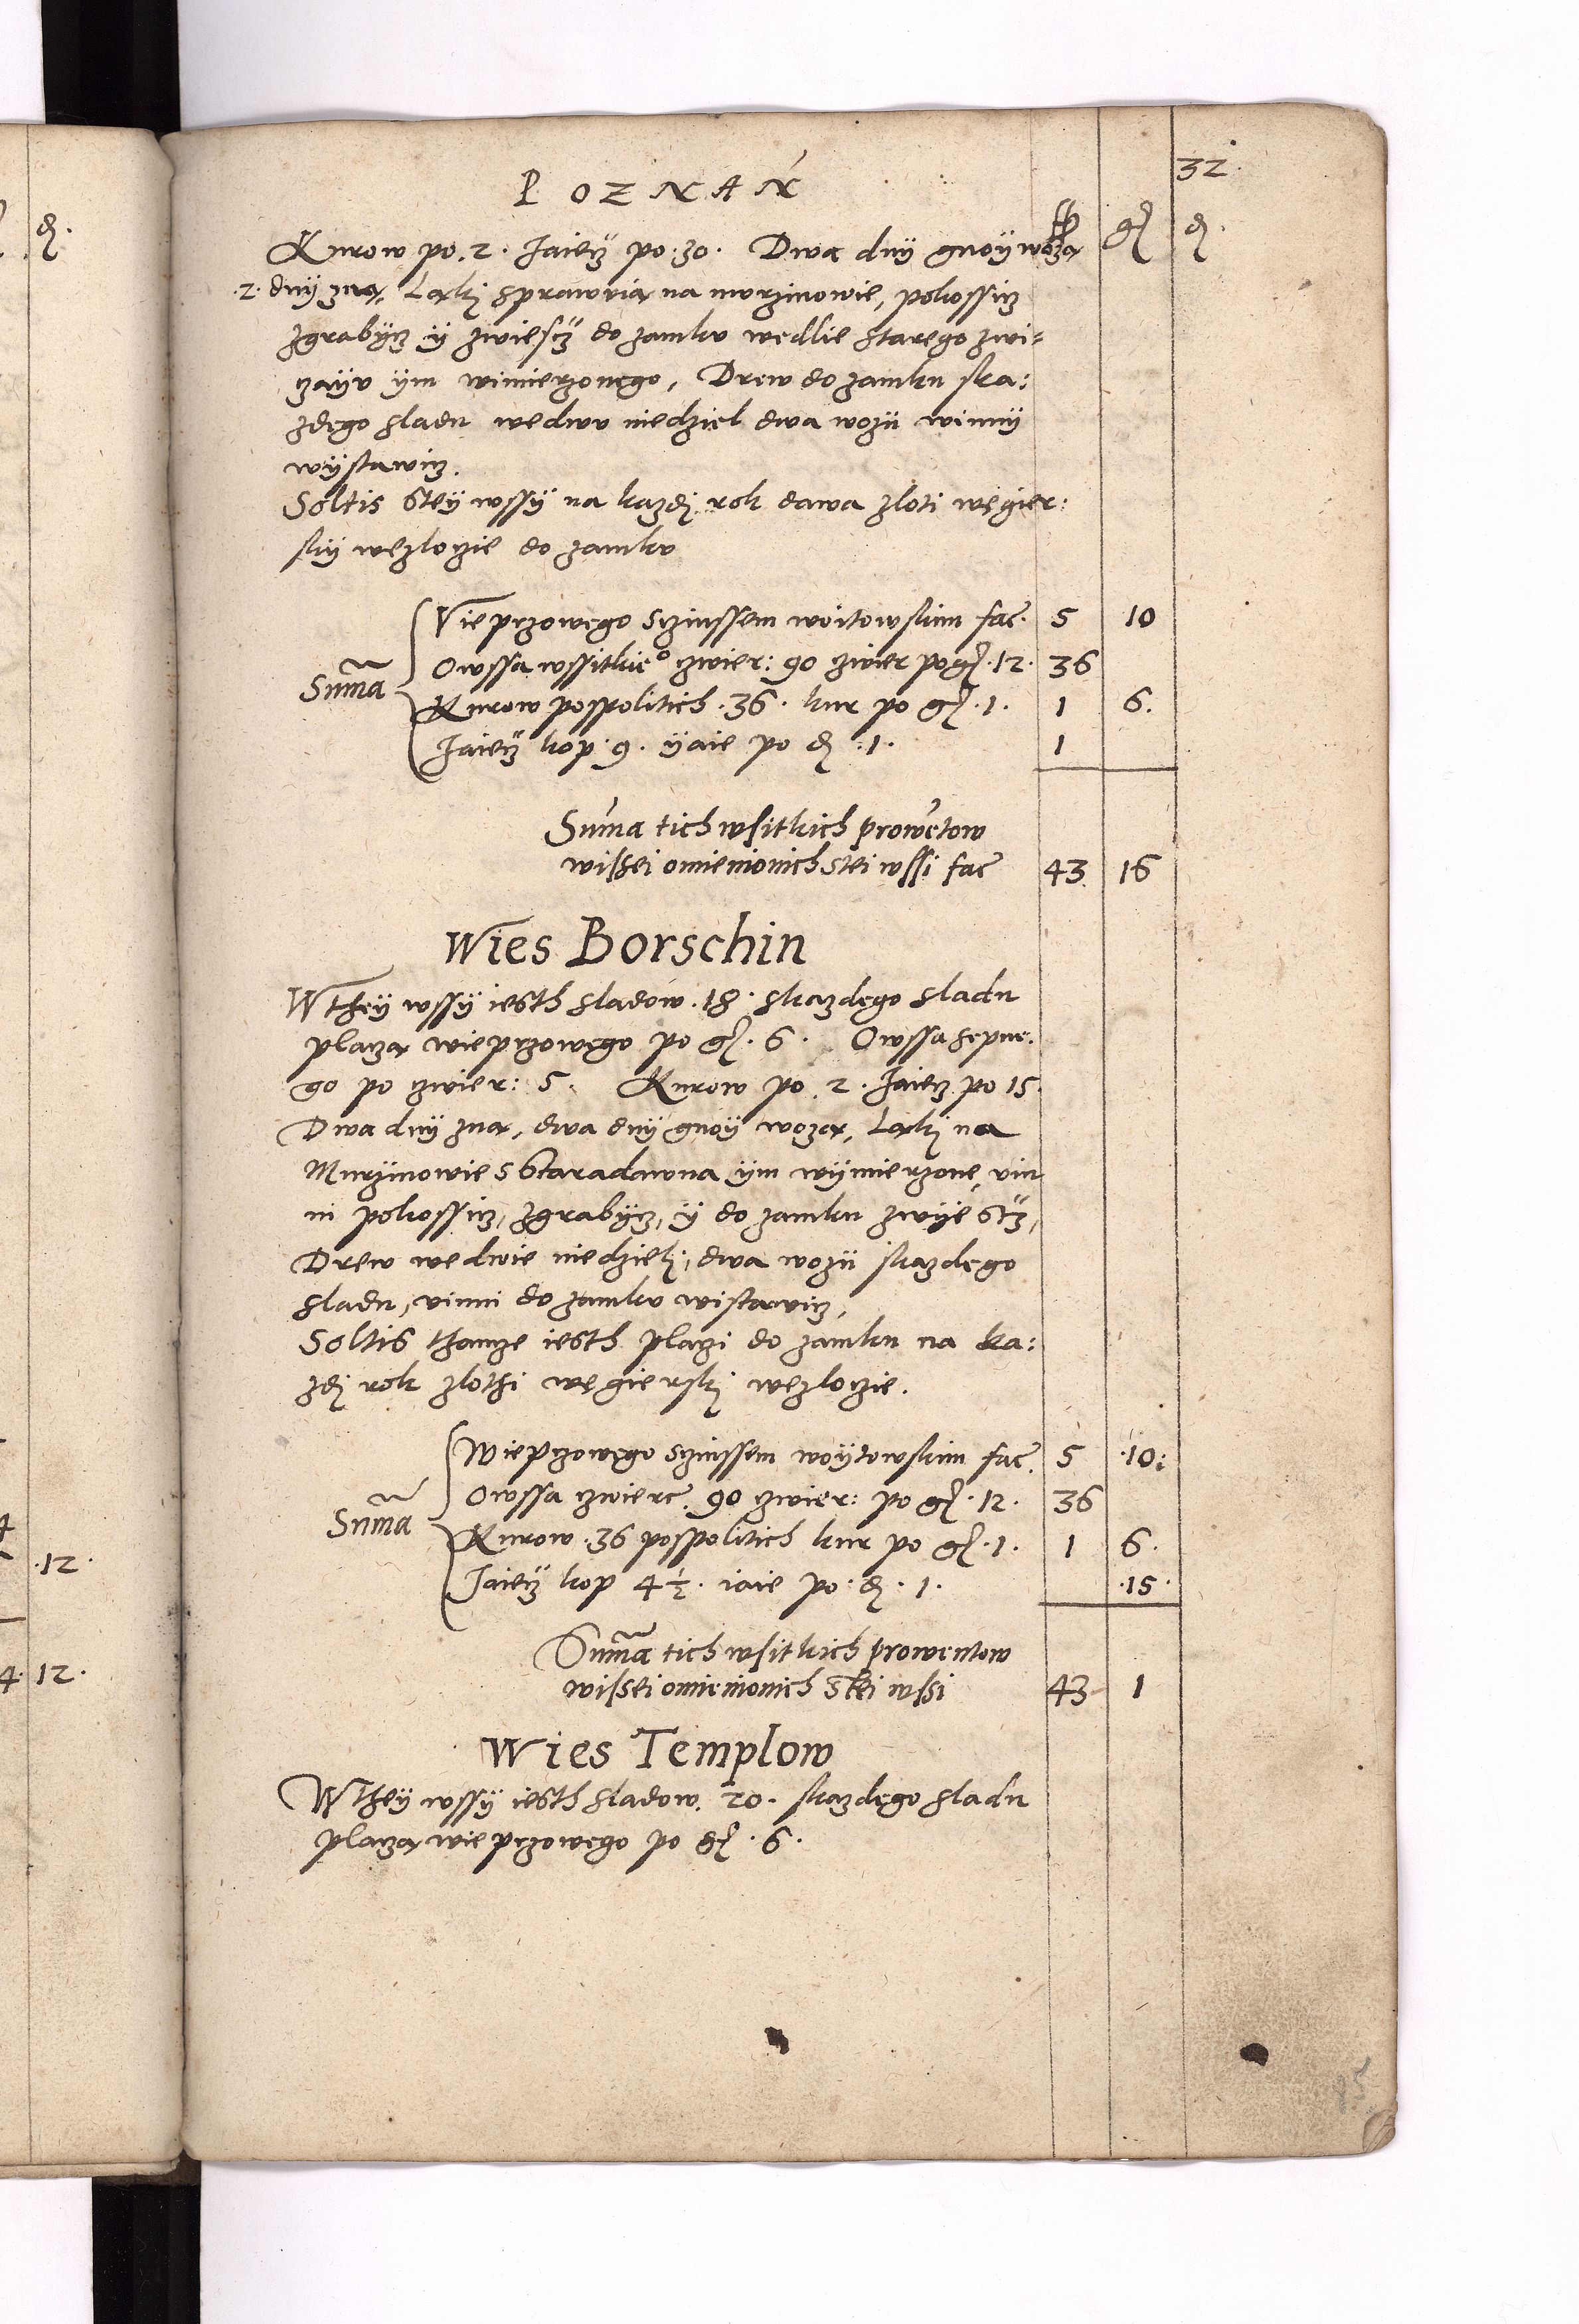 32.
POZNAŃ
fl gr δ.
Kurow po .2. Jaiecz po .30. Dwa dny gnoÿ woza
.2. dnÿ zna, Laki sprawuia na murzinowie, pokossicz
zgrabÿcz ÿ zwiescz do zamku wedlie starego zwi=
zaÿu ÿm wimierzonego, Drew do zamku ska:
zdego sladu wedwu niedziel dwa wozü winnÿ
wÿstawicz.
Soltis stey wssÿ na kazdi rok dawa zloti węgier:
skÿ wezlocie do zamku
Sum̃a
Vieprzowego sczinssem woitowskim fac. 5 10
Owssa wssitkie° czwier: 90 czwier po gr .12. 36
Kurow pospolitich .36. kur po gr .1. 1 6.
Jaiecz kop .9. ÿaie po δ .1. 1
Suma tich wsitkich prowetow
wissei omienionich stei wssi fac 43 16
Wies Borschin
W they wssÿ iesth sladow .18. skazdego sladu
placza wieprzowego po gr. 6. Owssa sepne:
go po czwier: 5. Kurow po .2. Jaiecz po 15.
Dwa dnÿ zna, dwa dnÿ gnoÿ woza, Laki na
Murzinowie s staradawna ÿm wÿmierzone, vin
ni pokossicz, zgrabÿcz, ÿ do zamku zwÿescz,
Drew wedwie niedzieli, dwa wozü skazdego
sladu, vinni do zamku wistawicz,
Soltis thamze iesth placzi do zamku na ka:
zdi rok zlothi węgierski wezloczie.
Sum̃a
Wieprzowego sczinssem woÿtowskim fac. 5 .10:
Owssa czwierc. 90 czwier: po gr .12. 36
Kurow .36 pospolitich kur po gr .1. 1 6.
Jaiecz kop 4½. iaie po δ. 1. .15.
Sum̃a tich wsitkich prowentow
wissei omienionich stei wssi 43 1
Wies Templow
W they wssÿ iesth sladow. 20. skazdego sladu
placza wieprzowego po gr .6.
δ.
.12.
4. 12.